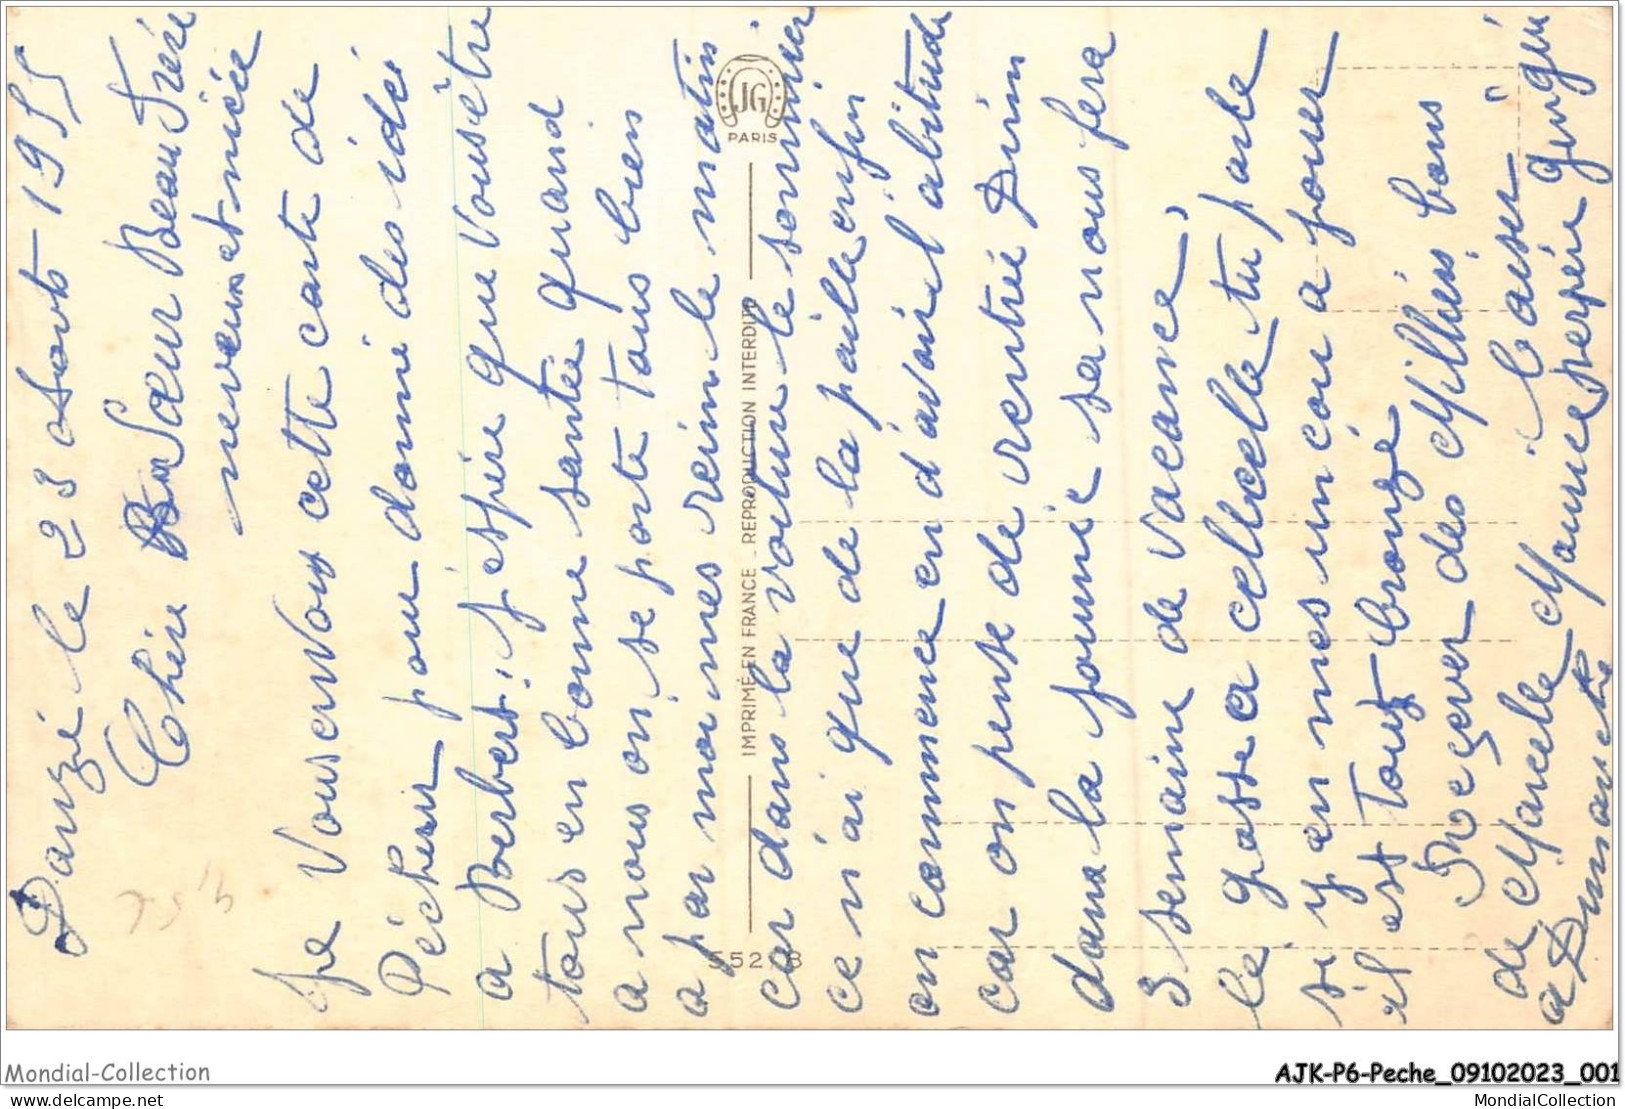 Danzé le 23 Aout 1955
Chère Sœur Beau Frère
neveux et nièce
Je Vous envoy cette carte de
Pécheur pour donné des idée
a Berbert. J'espère que Vous être
tous en bonne santée quand
a nous on se porte tous bien
a par moi mes rein le matin
car dans la voiture le sommier
ce n'ai que de la paille enfin
on commence en d'avoir l'abitude
car on pense de rentrié Dim
dans la journé sa nous fera
3 semaine de vacance,
le gosse a cellecelle tu parle
si y en mes un cou a jouer
il est tout bronzé
Recever des Milliers bons
baiser
de Marcelle Maurice
a Dimanche
JG
PARIS
IMPRIMÉ EN FRANCE - REPRODUCTION INTERDITE
Mondial-Collection
AJK-P6-Peche_09102023_001
delcampe.net
MondialCollection